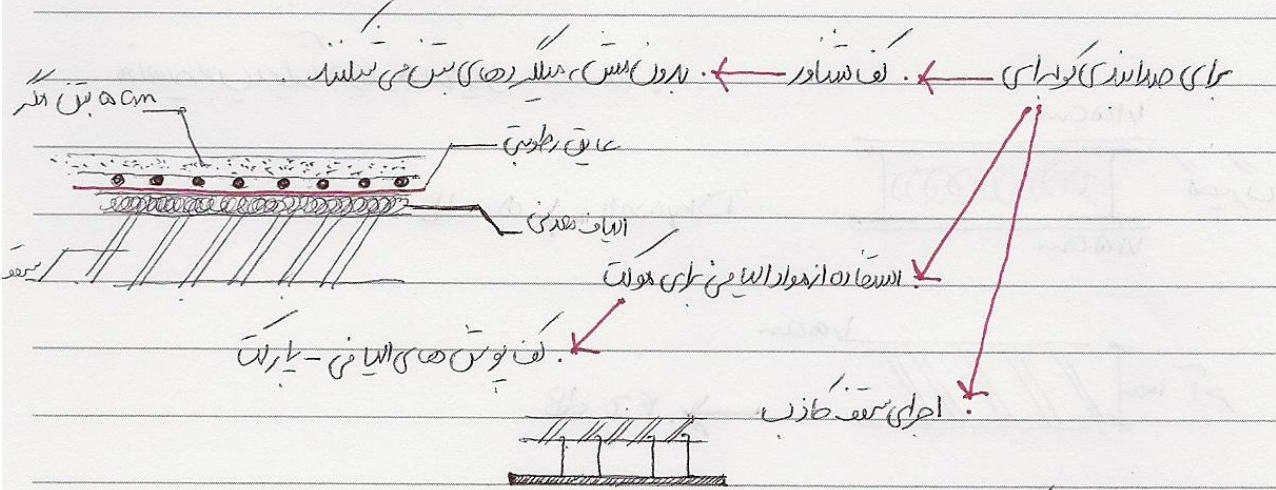 برای صدابندی کوبه‌ای . کف شناور . بدون مش، میلگردهای بتن می شکنند .
5cm بتن
عایق رطوبتی
الیاف معدنی
سقف
. استفاده از مواد الیافی برای موکت
. کف پوش های الیافی - پارکت
. اجرای سقف کاذب